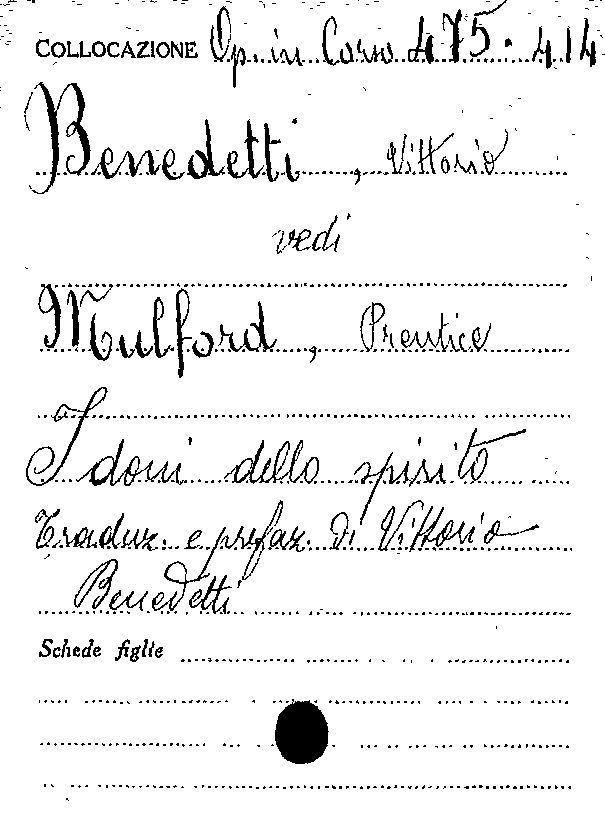 COLLOCAZIONE Op. in Corso 475. 414
Benedetti, Vittorio
vedi
Mulford, Prentice
I doni dello spirito
Traduz. e prefaz. di Vittorio
Benedetti
Schede figlie